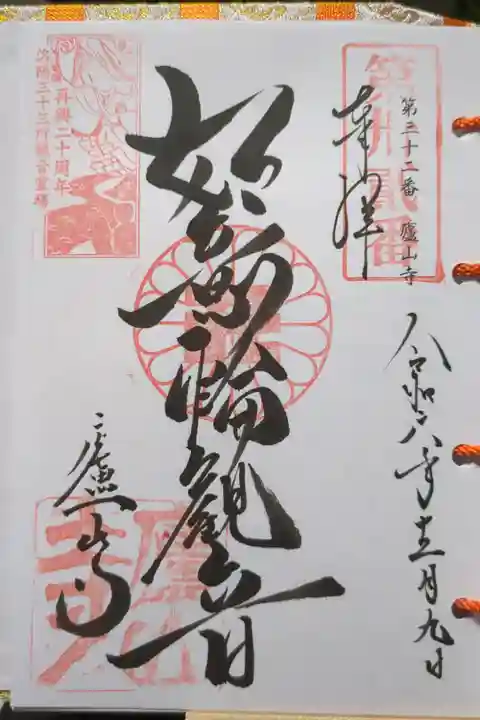 第卅貳番
第三十二番 廬山寺
奉拝
令和六年十二月九日
如意輪觀音
廬山寺
再興二十周年
洛陽三十三所観音霊場